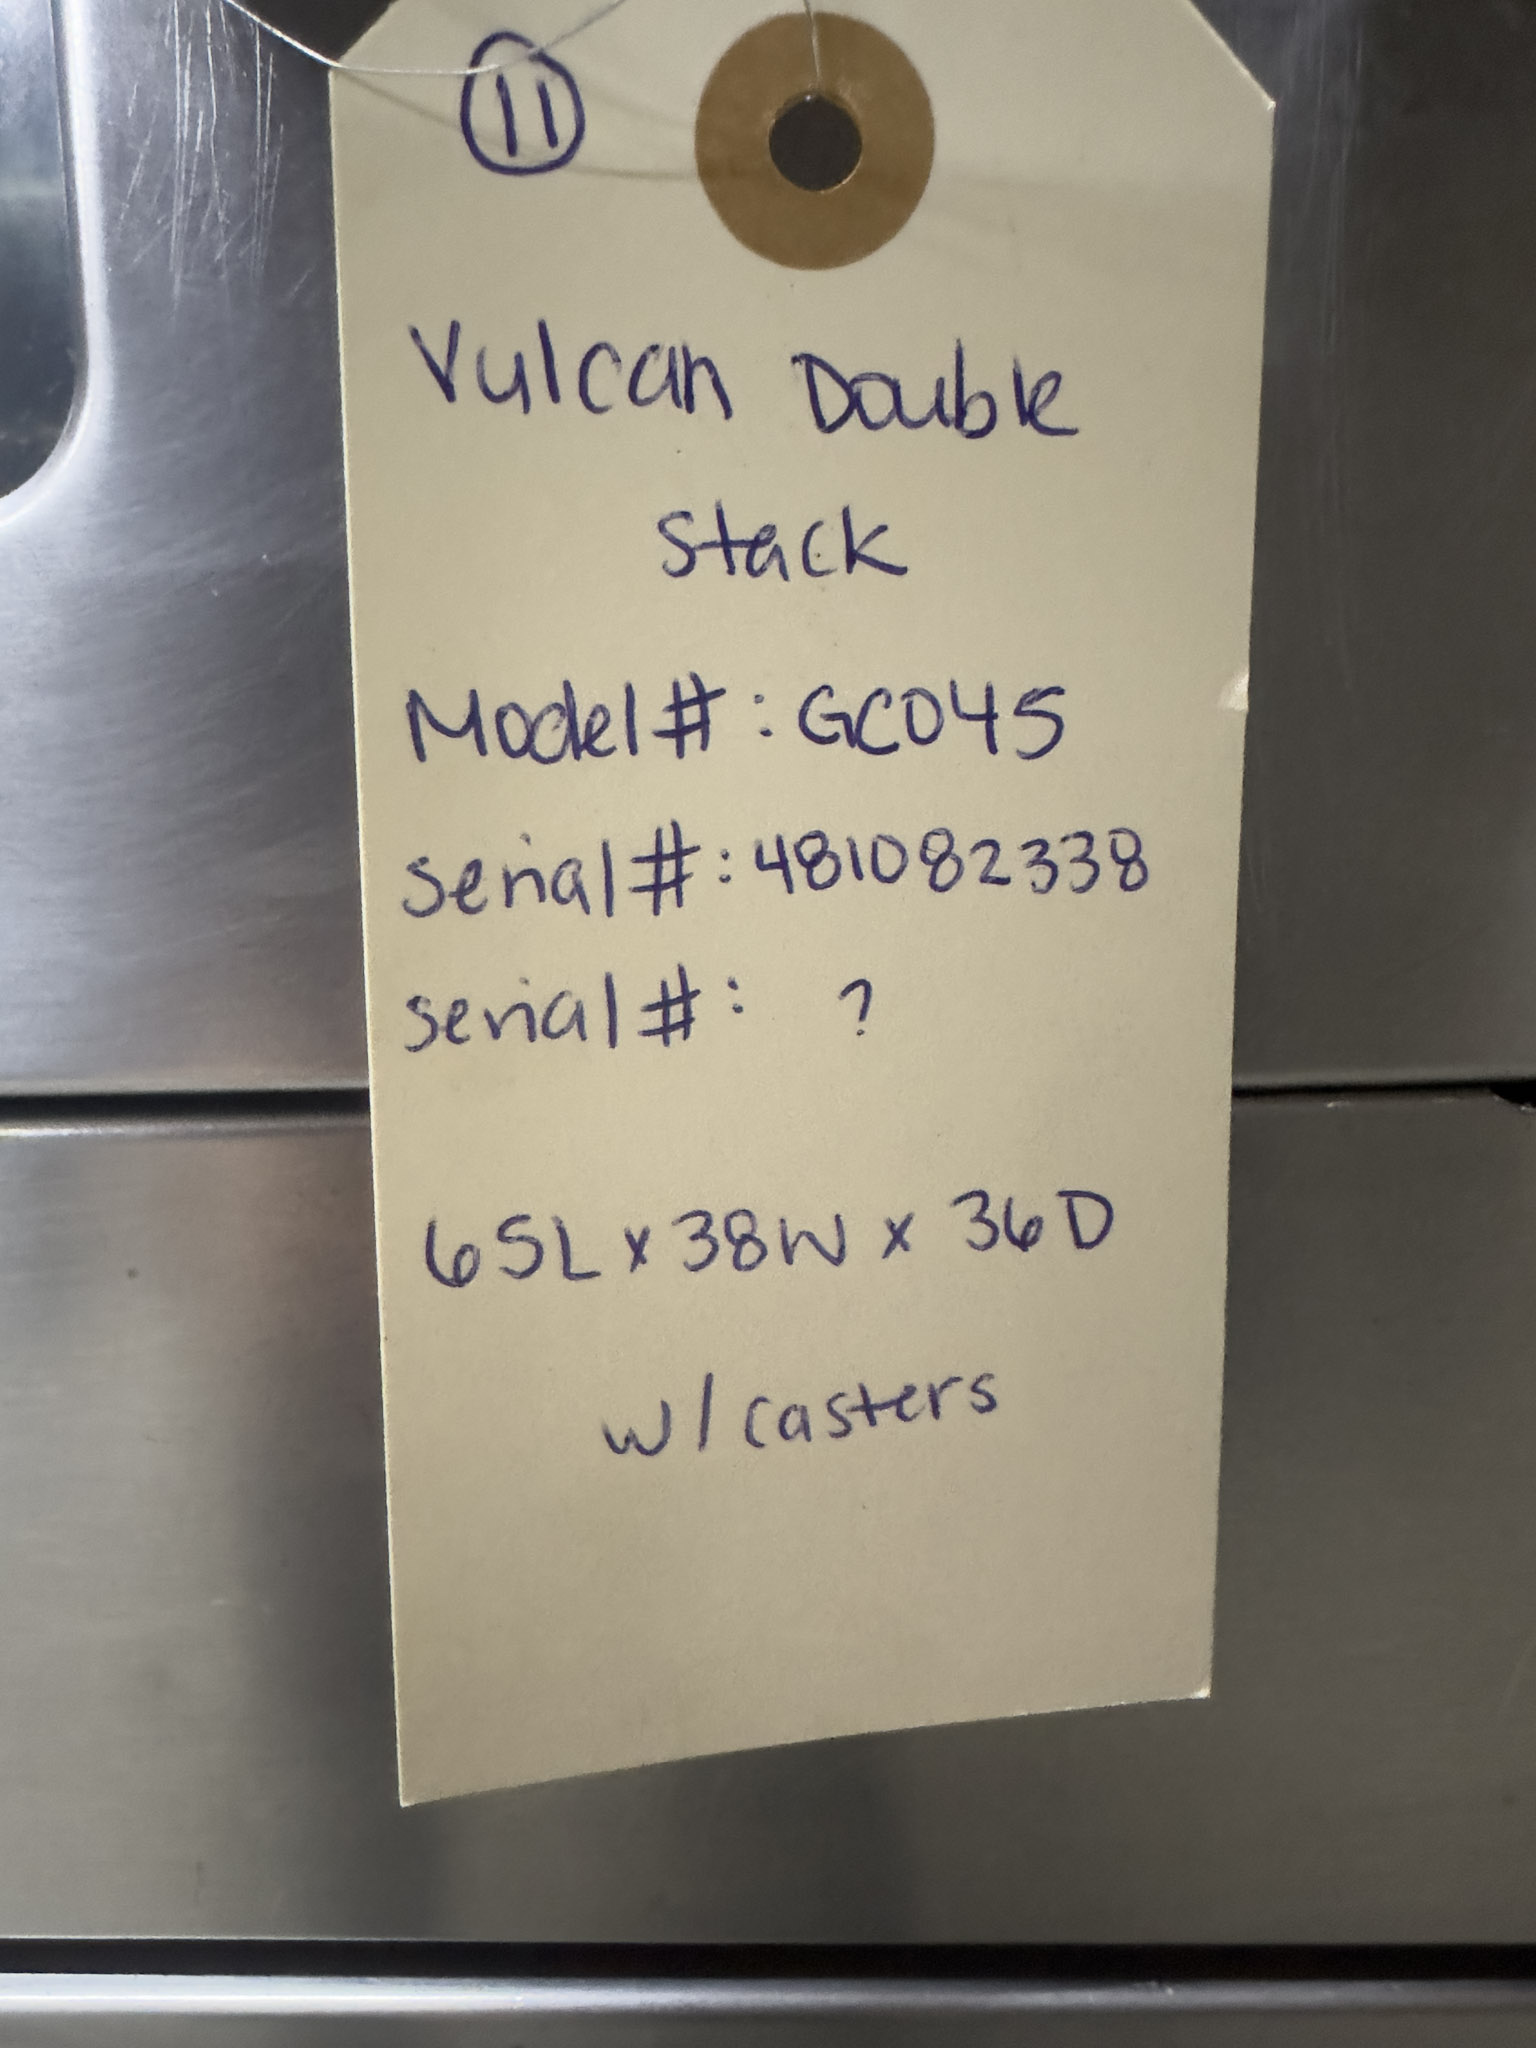 11
Vulcan Double
Stack
Model#: GCO45
serial#: 481082338
serial#: ?
65L x 38W x 36D
w/casters